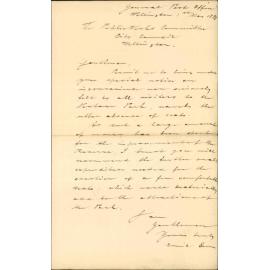 General Post Office
Wellington, 1st Nov 18
To Public Works Committee
City Council
Wellington.
Gentlemen,
Permit us to bring under
your special notice an
inconvenience now seriously
felt by all visitors to the
Park, namely the
utter absence of seats.
As not a large amount
of money has been spent
for the improvement of the
Reserve I trust you will
recommend the further small
expenditure needed for the
erection of a few comfortable
seats, which would materially
add to the attractions of
the Park.
I am
Gentlemen
Yours truly